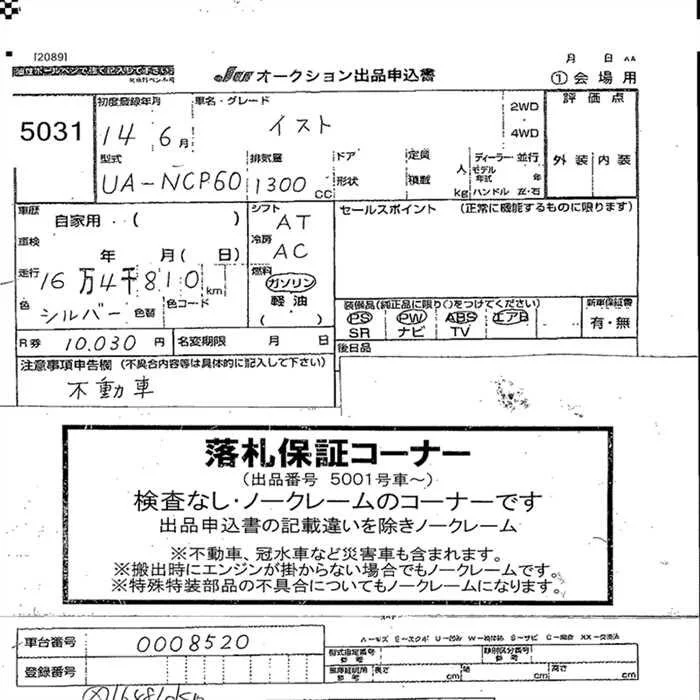 [2089]
月 日
油性ボールペンで強く記入して下さい
Jaa オークション出品申込書
① 会場用
5031
初度登録年月
車名・グレード
2WD
4WD
評価点
14 6月
イスト
型式
排気量
ドア
定員
ディーラー・並行
外装 内装
UA-NCP60
1300 CC
形状
積載
人
kg
モデル年式 年
ハンドル 左・右
車歴
自家用・( )
シフト
AT
セールスポイント (正常に機能するものに限ります)
車検
年 月( 日)
冷房
AC
走行
16万4千810km
燃料
ガソリン
軽油
( )
色
シルバー
色替
色コード
装備品(純正品に限り○をつけてください)
新車保証書
PS PW ABS エアB
SR ナビ TV
有・無
R券 10.030 円
名変期限 月 日
後日品
注意事項申告欄 (不具合内容等は具体的に記入して下さい)
不動車
落札保証コーナー
(出品番号 5001号車～)
検査なし・ノークレームのコーナーです
出品申込書の記載違いを除きノークレーム
※不動車、冠水車など災害車も含まれます。
※搬出時にエンジンが掛からない場合でもノークレームです。
※特殊特装部品の不具合についてもノークレームになります。
車台番号
0008520
型式指定番号
類別区分番号
登録番号
長さ cm
幅 cm
高さ cm